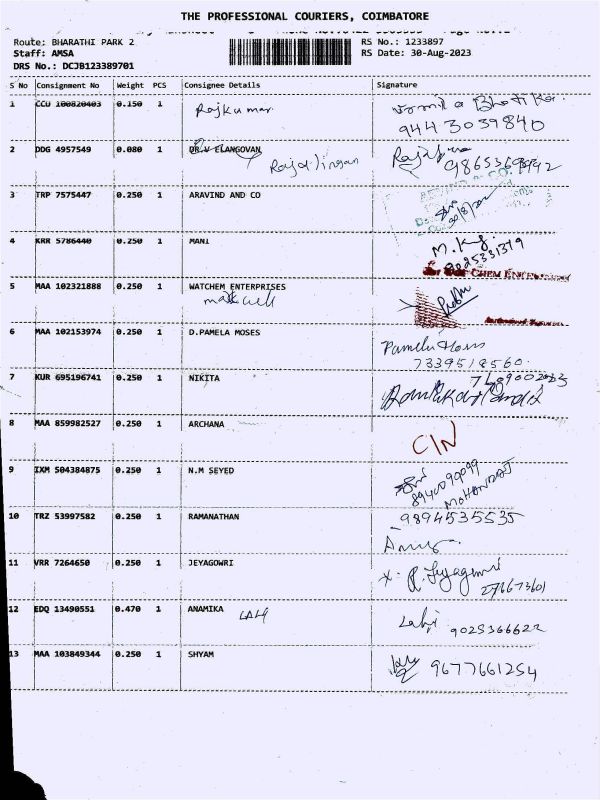 THE PROFESSIONAL COURIERS, COIMBATORE
Route: BHARATHI PARK 2
Staff: AMSA
DRS No.: DCJB123389701
RS No.: 1233897
RS Date: 30-Aug-2023
S No Consignment No Weight PCS Consignee Details Signature
1 CCU 100820403 0.150 1 Rajkumar
9443039840
2 DDG 4957549 0.080 1 DR.V ELANGOVAN
Rajalingam
9865369992
3 TRP 7575447 0.250 1 ARAVIND AND CO
4 KRR 5786440 0.250 1 MANI
9025331379
5 MAA 102321888 0.250 1 WATCHEM ENTERPRISES
Prabhu
6 MAA 102153974 0.250 1 D.PAMELA MOSES Pamela Moses
7339518560
7 KUR 695196741 0.250 1 NIKITA
8 MAA 859982527 0.250 1 ARCHANA CIN
9 IXM 504384875 0.250 1 N.M SEYED
8940090099
10 TRZ 53997582 0.250 1 RAMANATHAN 9894535535
11 VRR 7264650 0.250 1 JEYAGOWRI R. Jeyagowri
12 EDQ 13490551 0.470 1 ANAMIKA
9025366622
13 MAA 103849344 0.250 1 SHYAM 9677661254